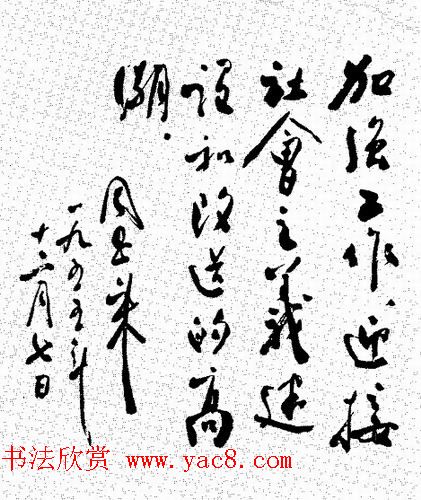 加强工作，迎接
社会主義建
設和改造的高
潮．
周恩来
一九五五年
十二月七日
书法欣赏 www.yac8.com